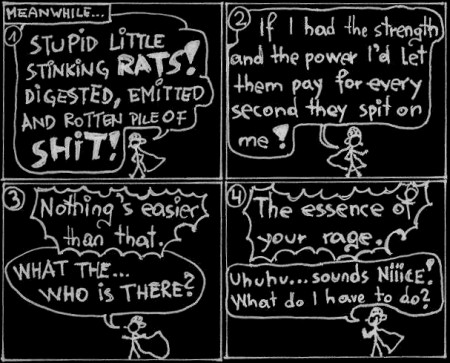 MEANWHILE...
1
STUPID LITTLE
STINKING RATS!
DIGESTED, EMITTED
AND ROTTEN PILE OF
SHIT!
2
If I had the strength
and the power I'd let
them pay for every
second they spit on
me!
3
Nothing's easier
than that.
WHAT THE...
WHO IS THERE?
4
The essence of
your rage.
Uhuhu... sounds NiiiCE!
What do I have to do?